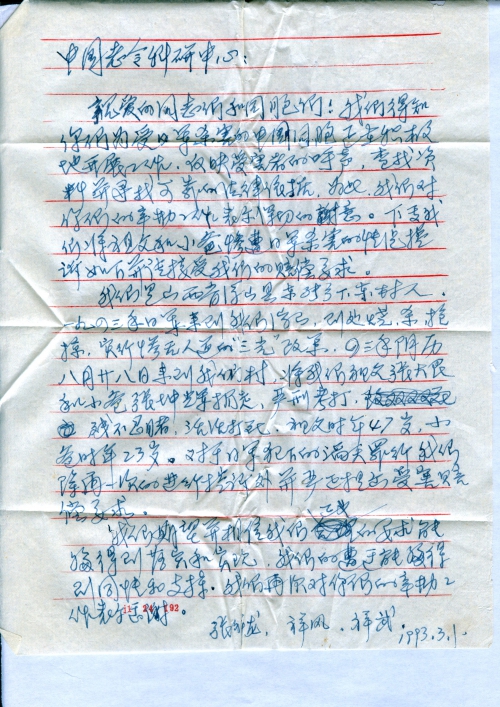 中国老会科研中心：
亲爱的同志们和同胞们！我们得知
你们为受日军杀害的中国同胞正在积极
地开展工作，反映受害者的呼声，查找资
料并寻找可靠的法律依据，为此，我们对
你们的辛勤工作表示深切的谢意。下支我
们将祖父和小爸惨遭日军杀害的情况提
诉如下并请接受我们的赔偿要求。
我们是山西省浮山县东张乡下东村人，
一九四三年日军来到我们家乡，到处烧、杀、抢
掠，实行惨无人道的"三光"政策，43年阴历
八月廿八日来到我们村，将我们祖父张大良
和小爸张坤兰抓走，严刑拷打，
残不忍睹，活活打死，祖父时年47岁，小
爸时年23岁。对于日军犯下的滔天罪行我们
除再一次的进行控诉外并要正提出受害赔
偿要求。
我们期望并相信我们正式的要求能
够得到落实和实现，我们的遭遇能够得
到同情和支持。我们再次对你们的辛勤工
作表示感谢。
11 24 192
张龙、祥凤、祥武。
1993.3.1.